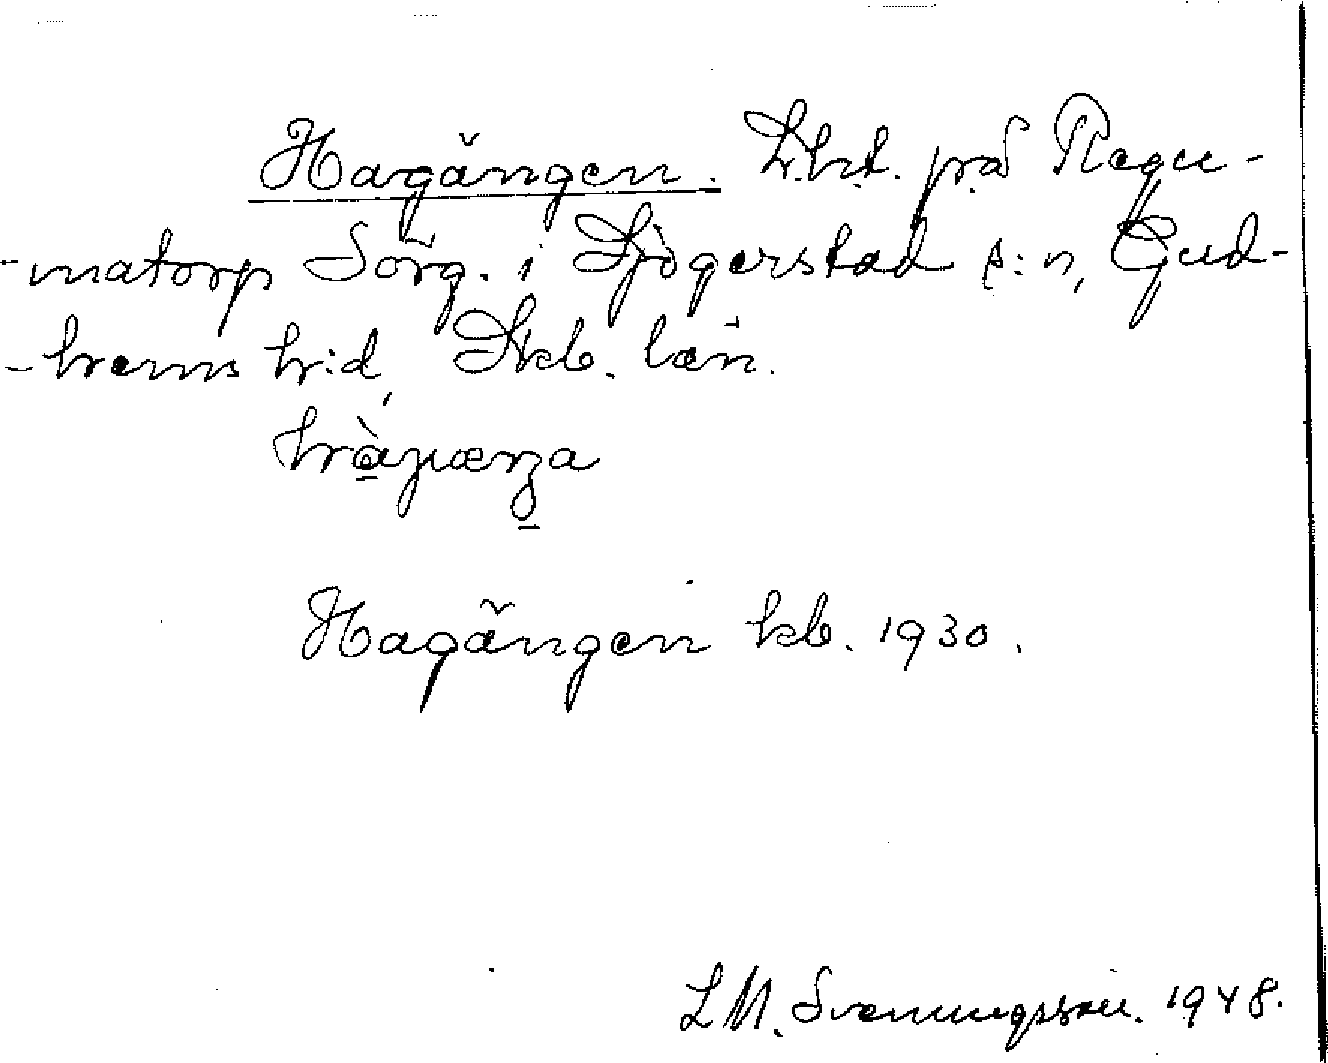 Hagängen. Lht. på Regu-
-matorp Sörg. i Sjögerstad s:n, Gud-
-hems h:d, Skb. län.
Hagängen kb. 1930.
LM. Svenungsson. 1948.